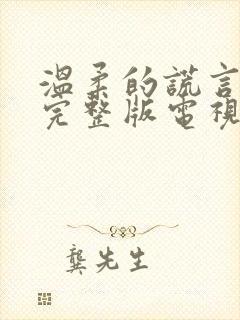 溫柔的謊言
完整版電視
龔先生